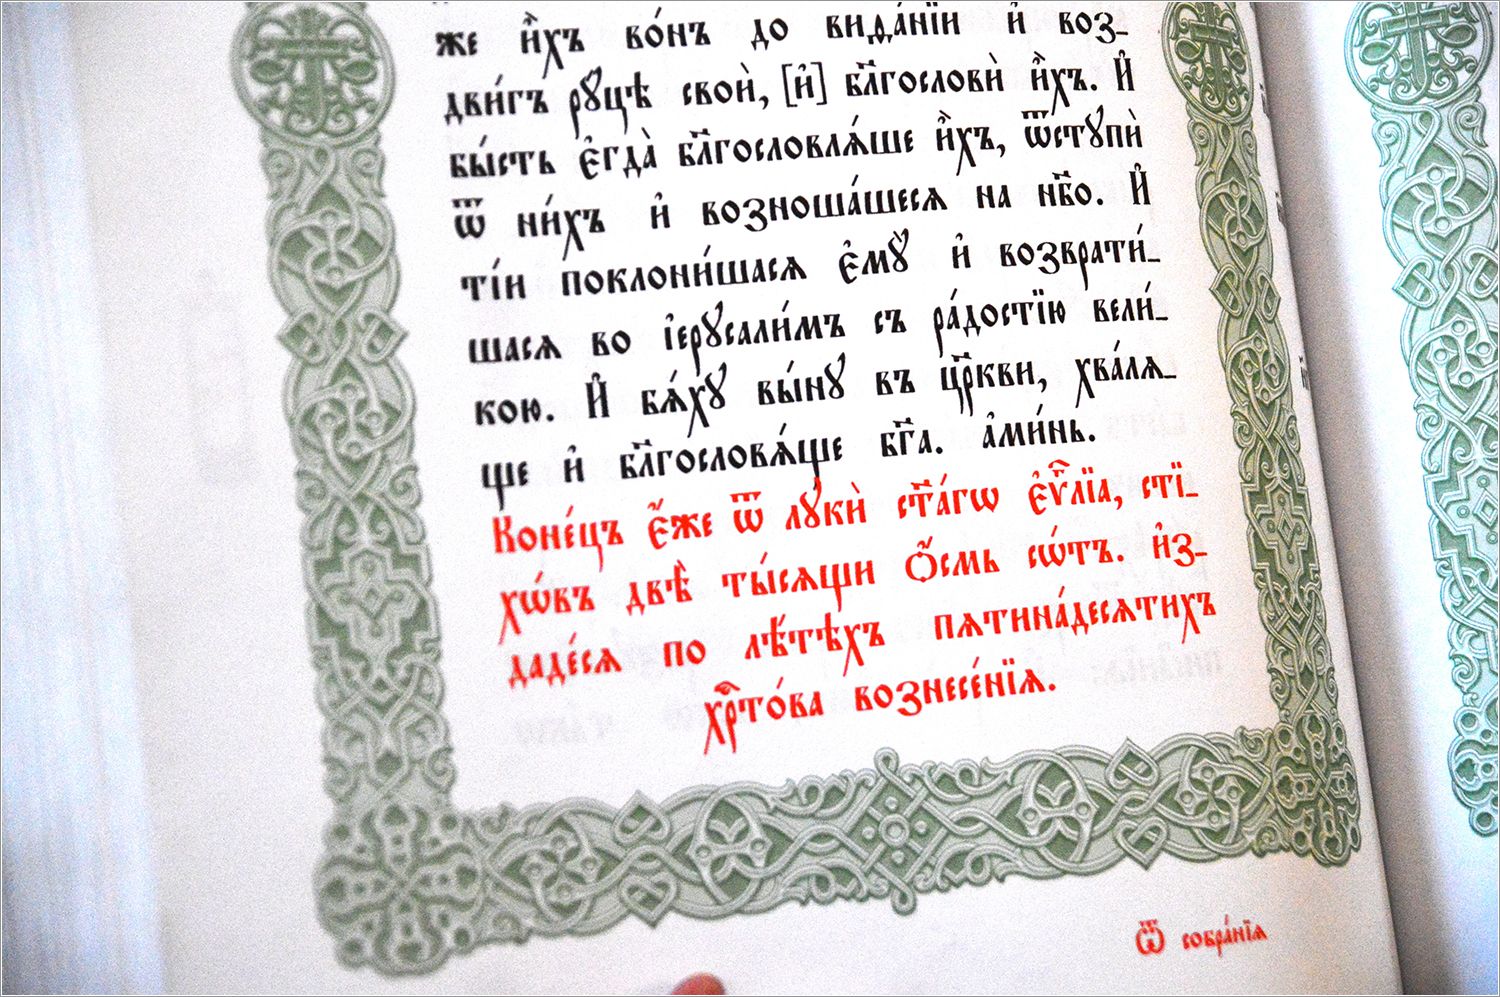 же и҆̀хъ во́нъ до виѳа́нїи и҆ воз_
дви́гъ рꙋцѣ свои̑, [и҆] бл҃гословѝ и҆̀хъ. И҆
бы́сть є҆гда̀ бл҃гословлѧ́ше и҆̀хъ, ѿстꙋпѝ
ѿ ни́хъ и҆ возноша́шесѧ на нб҃о. И҆
ті́и поклони́шасѧ є҆мꙋ̀ и҆ возврати́_
шасѧ во і҆ерꙋсали́мъ съ ра́достїю вели́_
кою. И҆ бѧ́хꙋ вы́нꙋ въ цр҃кви, хва́лѧ_
ще и҆ бл҃гословѧ́ще бг҃а. а҆ми́нь.
Коне́цъ є҆́же ѿ лꙋкѝ ст҃а́гѡ є҆ѵⷢ҇лїа, сті_
хѡ́въ двѣ̀ ты́сѧщи ѻ҆́смь сѡ́тъ. и҆з_
даде́сѧ по лѣ́тѣхъ пѧтина́десѧтихъ
хрⷭ҇то́ва вознесе́нїѧ.
ѿ собра́нїѧ